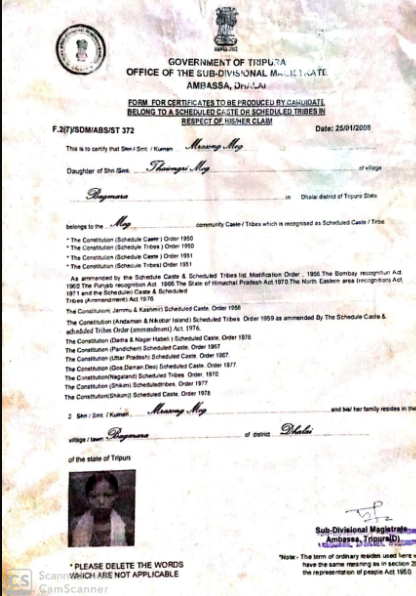 GOVERNMENT OF TRIPURA
OFFICE OF THE SUB-DIVISIONAL MAGISTRATE
AMBASSA, DHALAI
FORM FOR CERTIFICATES TO BE PRODUCED BY CANDIDATE
BELONG TO A SCHEDULED CASTE OR SCHEDULED TRIBES IN
RESPECT OF HIS/HER CLAIM
F.2(7)/SDM/ABS/ST 372 Date: 25/01/2008
This is to certify that Shri / Smt. / Kumari Mrasong Mog
Daughter of Shri /Smt. Thaiongri Mog of village
Bagmara in Dhalai district of Tripura State
belongs to the Mog community Caste / Tribes which is recognised as Scheduled Caste / Tribe
* The Constitution (Schedule Caste ) Order 1950
* The Constitution (Schedule Tribes ) Order 1950
* The Constitution (Schedule Caste ) Order 1951
* The Constitution (Schedule Tribes) Order 1951
As ammended by the Schedule Caste & Scheduled Tribes list Modification Order , 1956.The Bombay recognition Act.
1960 The Punjab recognition Act. 1966 The State of Himachal Pradesh Act.1970.The North Eastern area (recognition) Act,
1971 and the Scheduled Caste & Scheduled
Tribes (Ammendment) Act.1976
The Constitution( Jammu & Kashmir) Scheduled Caste. Order 1956
The Constitution (Andaman & Nikobar Island) Scheduled Tribes Order 1959 as ammended By The Schedule Caste &
scheduled Tribes Order (ammendment) Act. 1976.
The Constitution (Dadra & Nagar Habeli ) Scheduled Caste. Order 1978.
The Constitution (Pandicheri) Scheduled Caste. Order 1967
The Constitution (Uttar Pradesh) Scheduled Caste. Order 1967.
The Constitution (Goa.Daman.Deo) Scheduled Caste. Order 1977.
The Constitution(Nagaland) Scheduled Tribes. Order. 1970.
The Constitution (Sikim) Scheduledtribes. Order 1977
The Constitution(Sikim)) Scheduled Caste. Order 1978
2 Shri / Smt. / Kumari Mrasong Mog and his/ her family resides in the
village / town Bagmara of district Dhalai
of the state of Tripuri
Sub-Divisional Magistrate
Ambassa, Tripura(D)
* PLEASE DELETE THE WORDS
WHICH ARE NOT APPLICABLE
*Note:- The term of ordinary resides used here
have the same meaning as in section 20
the representation of people Act 1950.
CS
CamScanner